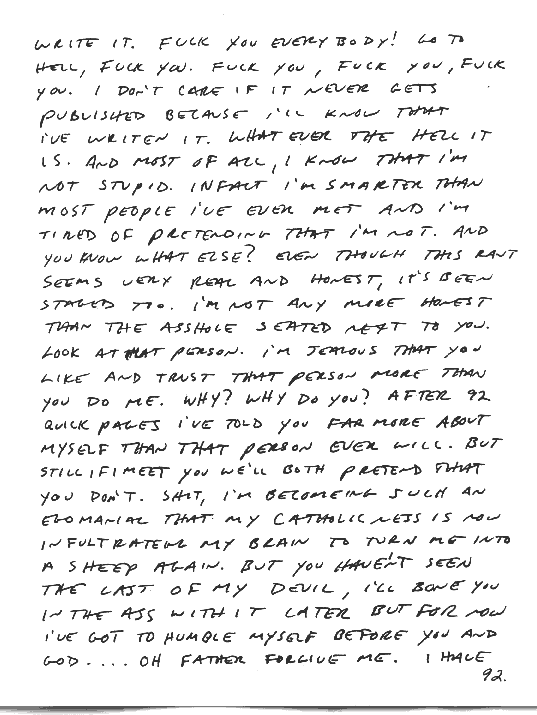 WRITE IT. FUCK YOU EVERYBODY! GO TO
HELL, FUCK YOU. FUCK YOU, FUCK YOU, FUCK
YOU. I DON'T CARE IF IT NEVER GETS
PUBLISHED BECAUSE I'LL KNOW THAT
I'VE WRITEN IT. WHAT EVER THE HELL IT
IS. AND MOST OF ALL, I KNOW THAT I'M
NOT STUPID. INFACT I'M SMARTER THAN
MOST PEOPLE I'VE EVER MET AND I'M
TIRED OF PRETENDING THAT I'M NOT. AND
YOU KNOW WHAT ELSE? EVEN THOUGH THIS RANT
SEEMS VERY REAL AND HONEST, IT'S BEEN
STAGED TOO. I'M NOT ANY MORE HONEST
THAN THE ASSHOLE SEATED NEXT TO YOU.
LOOK AT THAT PERSON. I'M JEALOUS THAT YOU
LIKE AND TRUST THAT PERSON MORE THAN
YOU DO ME. WHY? WHY DO YOU? AFTER 92
QUICK PAGES I'VE TOLD YOU FAR MORE ABOUT
MYSELF THAN THAT PERSON EVER WILL. BUT
STILL IF I MEET YOU WE'LL BOTH PRETEND THAT
YOU DON'T. SHIT, I'M BECOMEING SUCH AN
EGOMANIAC THAT MY CATHOLICNESS IS NOW
INFULTRATEING MY BRAIN TO TURN ME INTO
A SHEEP AGAIN. BUT YOU HAVEN'T SEEN
THE LAST OF MY DEVIL, I'LL BONE YOU
IN THE ASS WITH IT LATER BUT FOR NOW
I'VE GOT TO HUMBLE MYSELF BEFORE YOU AND
GOD.... OH FATHER FORGIVE ME. I HAVE
92.